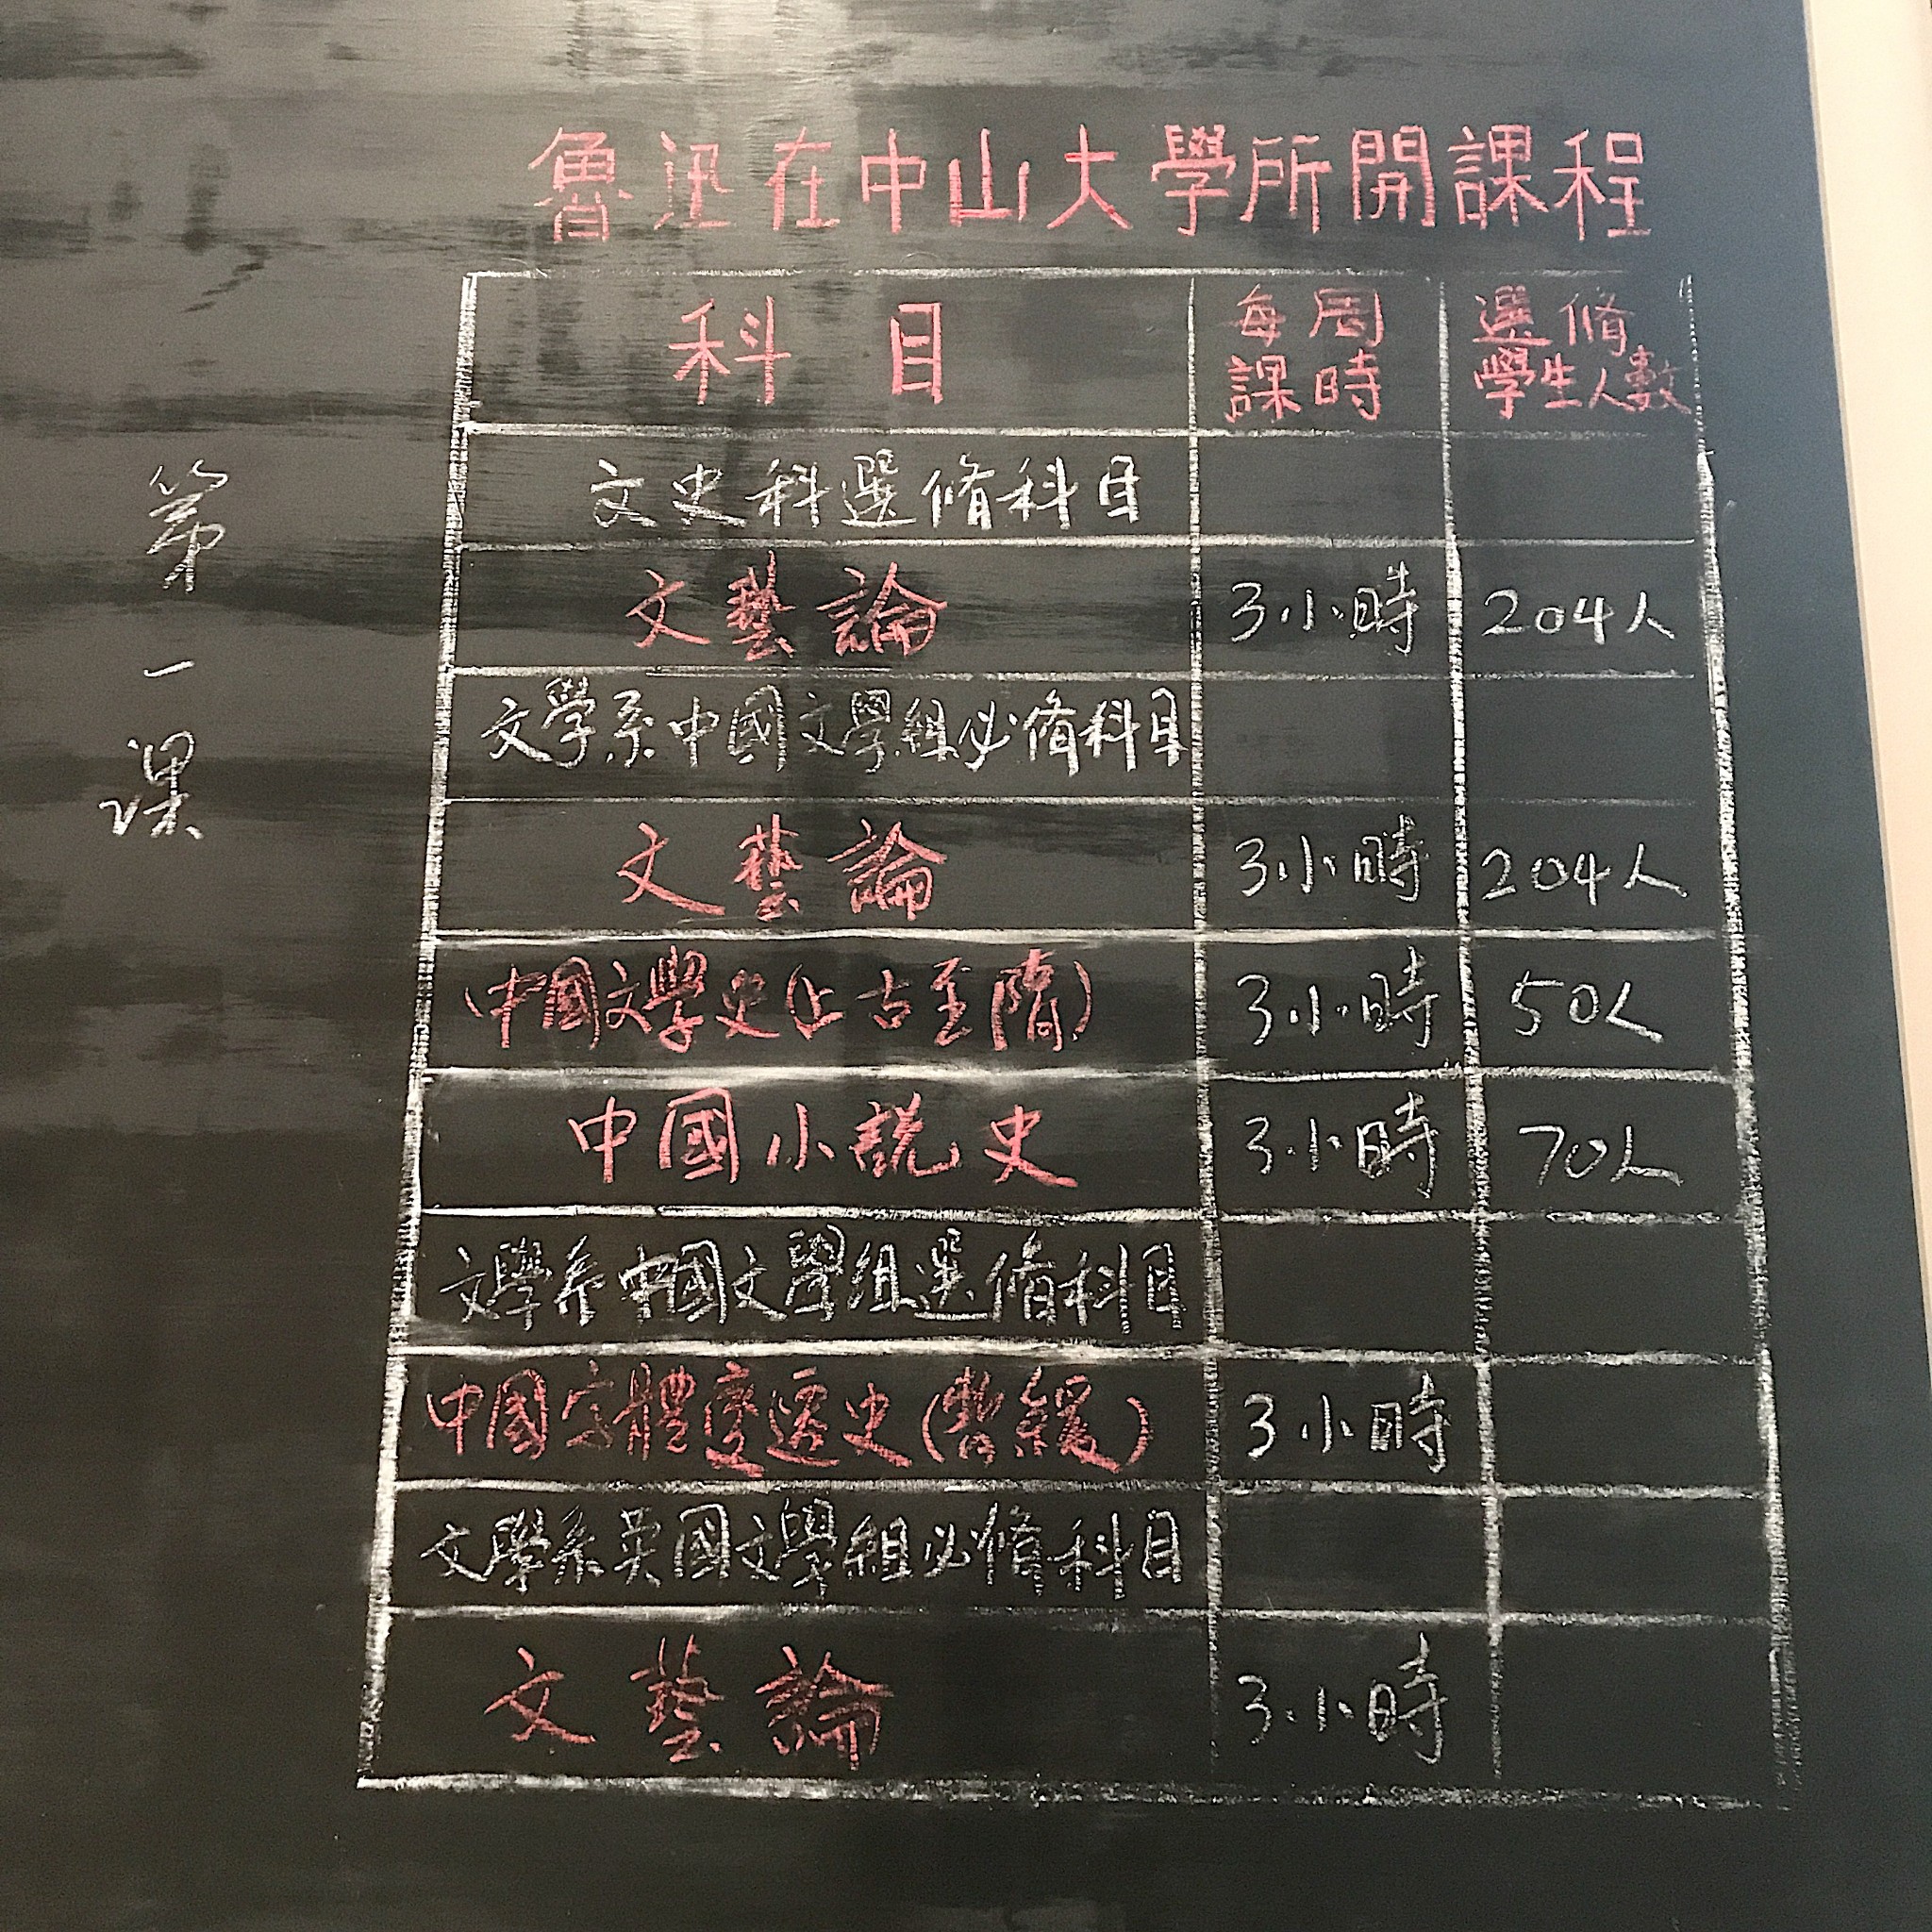 魯迅在中山大學所開課程
科目 每周課時 選修學生人數
文史科選修科目
文藝論 3小時 204人
文學系中國文學組必修科目
文藝論 3小時 204人
中國文學史(上古至隋) 3小時 50人
中國小説史 3小時 70人
文學系中國文學組選修科目
中國字體變遷史(暫緩) 3小時
文學系英國文學組必修科目
文藝論 3小時
第一课